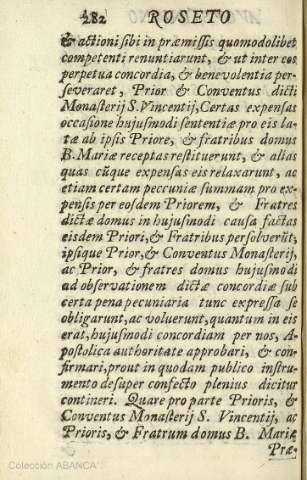 282 ROSETO
& actioni sibi in præmissis quomodolibet
competenti renuntiarunt, & ut inter eos
perpetua concordia, & benevolentia per-
severaret, Prior & Conventus dicti
Monasterij S. Vincentij, Certas expensas
occasione hujusmodi sententiæ pro eis la-
tæ ab ipsis Priore, & fratribus domus
B. Mariæ receptas restituerunt, & alias
quas cũque expensas eis relaxarunt, ac
etiam certam peccuniæ summam pro ex-
pensis per eosdem Priorem, & Fratres
dictæ domus in hujusmodi causa factas
eisdem Priori, & Fratribus persolverũt,
ipsique Prior, & Conventus Monasterij,
ac Prior, & fratres domus hujusmodi
ad observationem dictæ concordiæ sub
certa pena pecuniaria tunc expressa se
obligarunt, ac voluerunt, quantum in eis
erat, hujusmodi concordiam per nos, A-
postolica authoritate approbari, & con-
firmari, prout in quodam publico instru-
mento desuper confecto plenius dicitur
contineri. Quare pro parte Prioris, &
Conventus Monasterij S. Vincentij, ac
Prioris, & Fratrum domus B. Mariæ
Præ-
Colección ABANCA